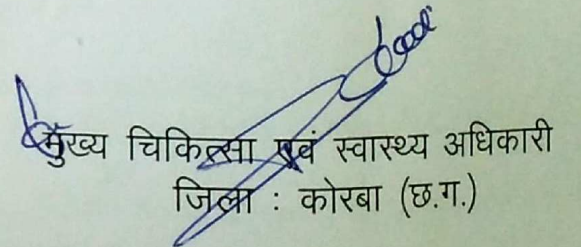 मुख्य चिकित्सा एवं स्वास्थ्य अधिकारी
जिला : कोरबा (छ.ग.)